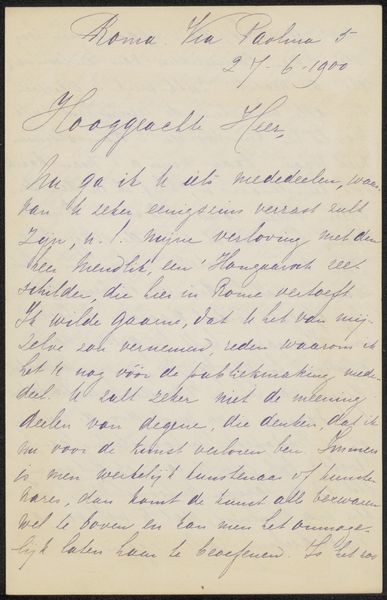 Roma. Via Paolina 5
27-6-1900
Hooggeachte Heer,
Nu ga ik U iets mededeelen, waar
van U zeker eenigszins verrast zult
zijn, n.l. mijne verloving met den
heer Mendlik, een Hongaarsch zee
schilder, die hier in Rome vertoeft
Ik wilde gaarne, dat U het van mij
zelve zou vernemen, reden waarom ik
het U nog vóór de publiekmaking mede
deel. U zult zeker niet de meening
deelen van degene, die denken, dat ik
nu voor de kunst verloren ben. Immers
is men werkelijk kunstenaar of kunste
nares, dan komt de kunst alle bezwaren
wel te boven en kan men het onmoge
lijk laten haar te beoefenen. Is het zoo